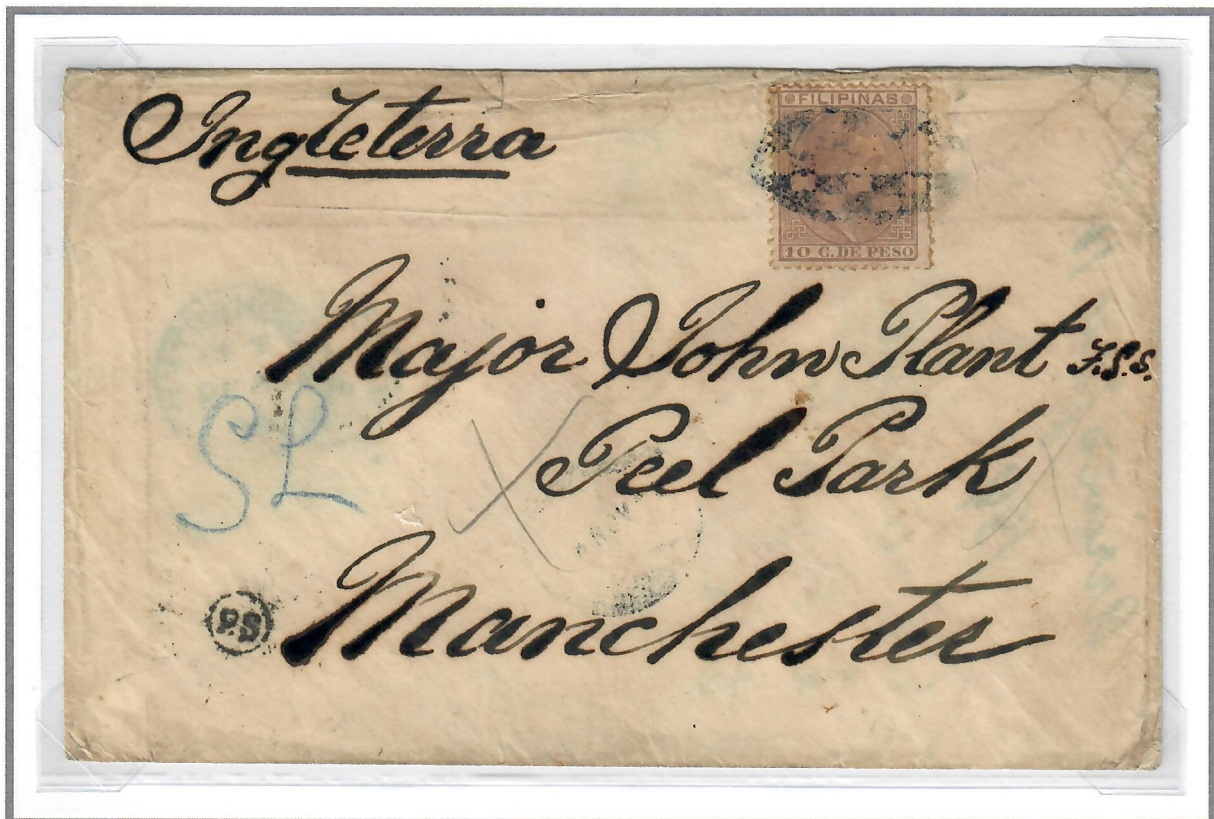 Ingleterra
FILIPINAS
10 C. DE PESO
Major John Plant F.G.S.
Peel Park
SL
Manchester
P.S